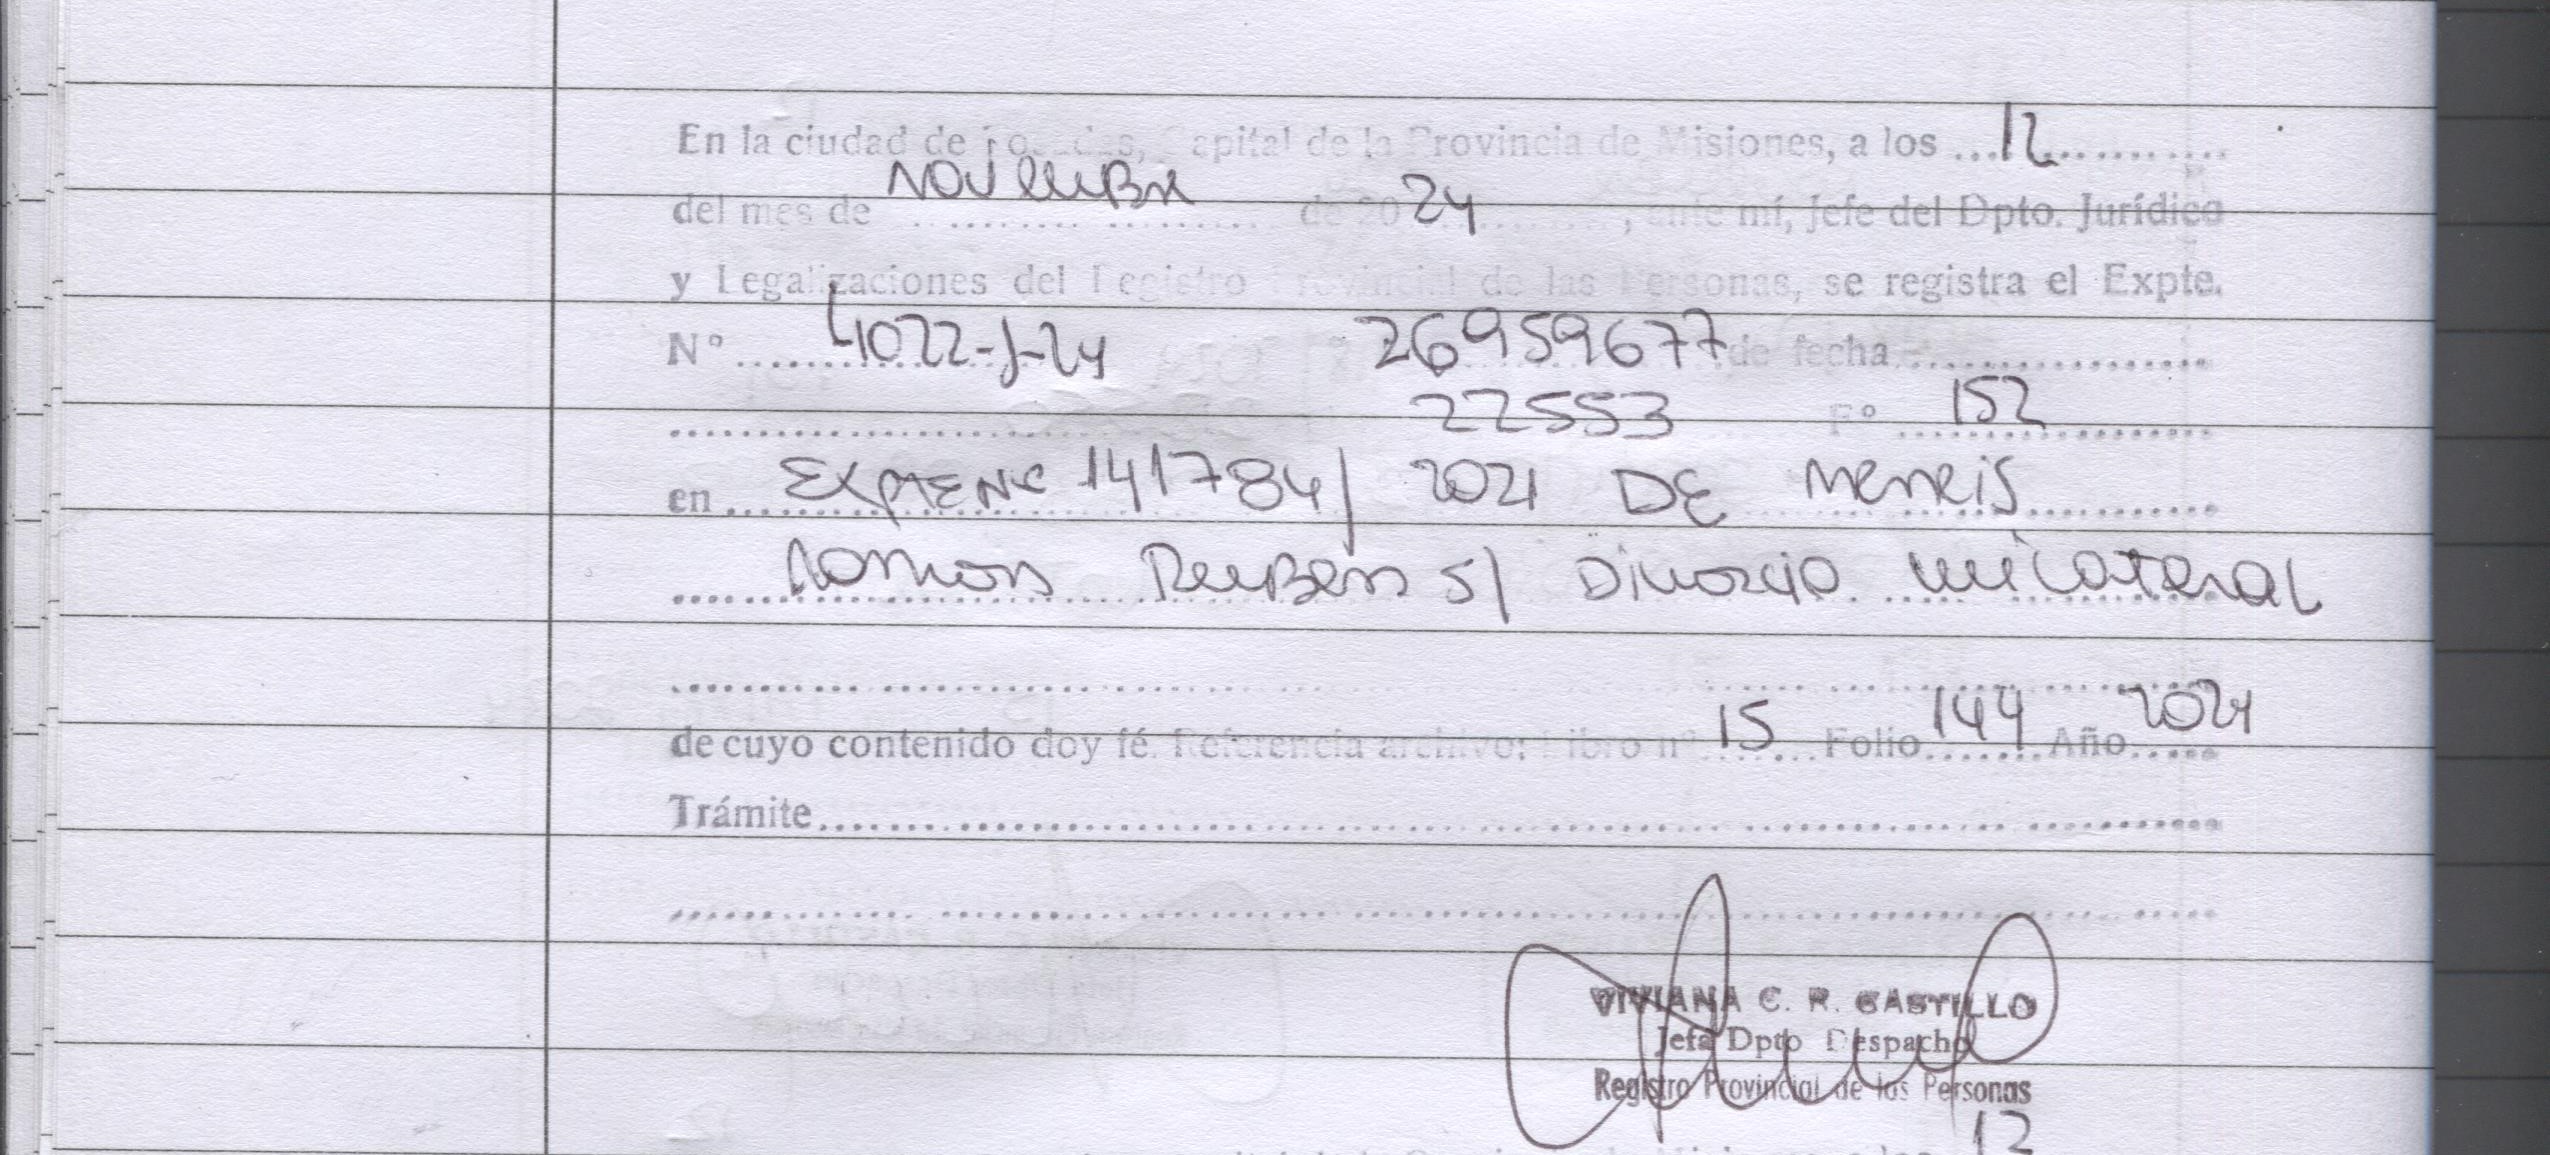 En la ciudad de Posadas, Capital de la Provincia de Misiones, a los ... 12 ...
del mes de Noviembre de 20 24, ante mí, Jefe del Dpto. Jurídico
y Legalizaciones del Registro Provincial de las Personas, se registra el Expte.
N° ... 4022-J-24 26959677 de fecha ...
22553 F° 152
en ... 141784/ 2021 DE
Ramon Ruben s/ Divorcio unilateral
de cuyo contenido doy fé. Referencia archivo: Libro n° 15 Folio 144 Año 2024
Trámite
VIVIANA C. R. CASTILLO
Jefa Dpto Despacho
Registro Provincial de las Personas
12